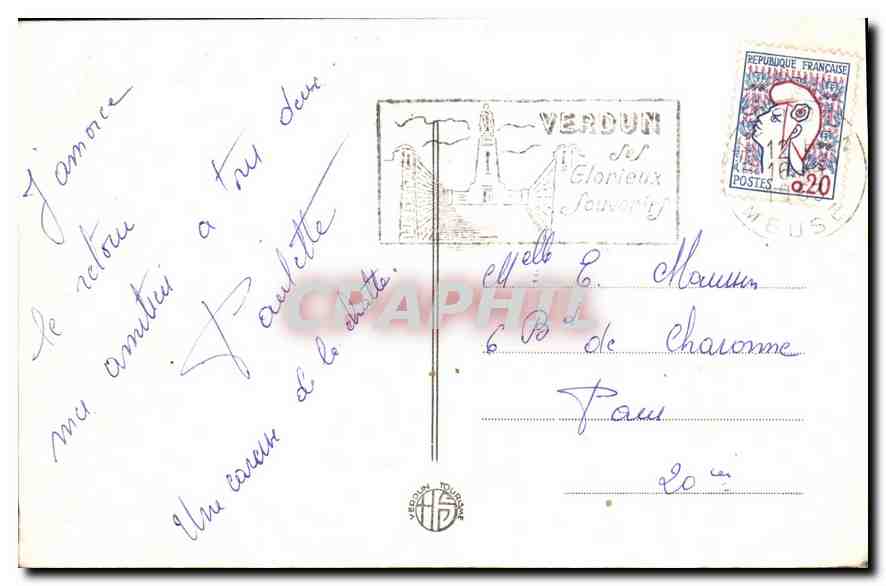 J'amorce
le retour
mes amitiés a tous deux.
Paulette
Une caresse de la chatte.
VERDUN
Ses
Glorieux
Souvenirs
REPUBLIQUE FRANÇAISE
POSTES 0,20
12
16
MEUSE
Melle E.
6 Bd de Charonne
Paris
20ième
VERDUN TOURISME
CPAPHIL